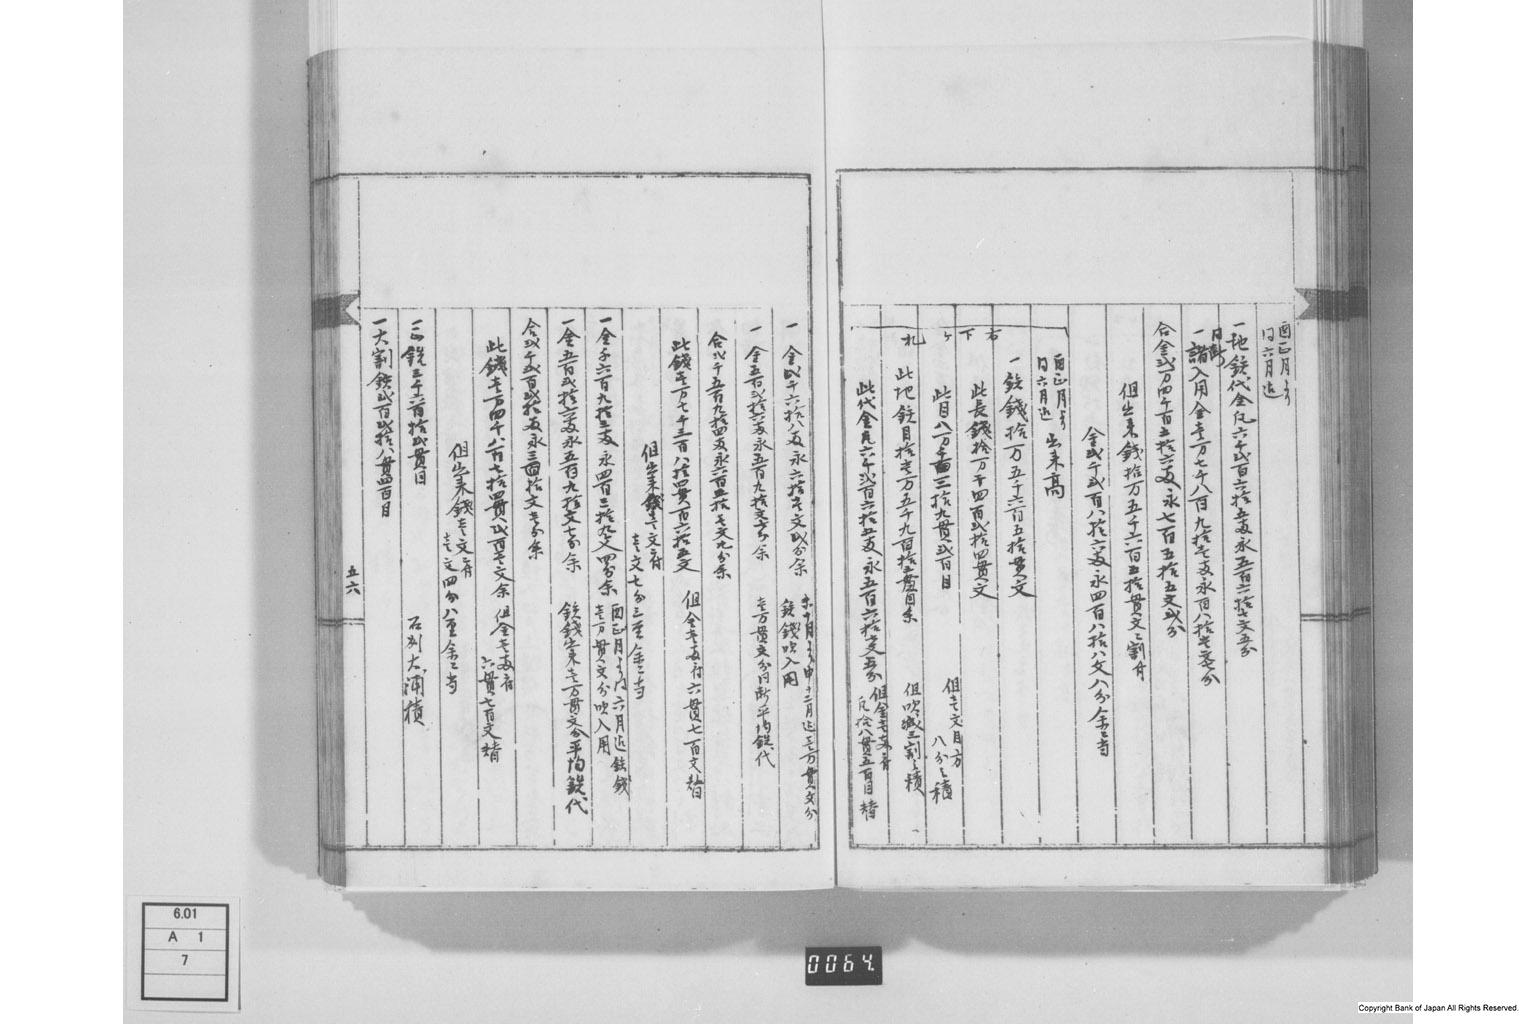 酉正月ゟ
同六月迄
一地鉄代金凡六千弐百六拾五両永五百六拾壱文五分
同断
一諸入用金壱万七千八百九拾壱両永百八拾壱文七分
合金弐万四千百五拾六両永七百五拾五文弐分
但出来銭拾万五千六百五拾貫文ニ割付
金弐千弐百八拾六両永四百八拾八文八分余ニ当
酉正月ゟ
同六月迄 出来高
一鉄銭拾万五千六百五拾貫文
此長銭拾万千四百弐拾四貫文
此目八万千百三拾九貫弐百目
但壱文目方
八分之積
此地鉄目拾壱万五千九百拾三貫目余
但吹減三割之積
此代金凡六千弐百六拾五両永五百六拾壱文五分
但金壱両ニ付
凡拾八貫五百目替
右下ケ札
一金弐千六拾八両永六拾壱文弐分余
未十月ゟ申十二月迄壱万貫文分
鉄銭吹入用
一金五百弐拾六両永五百九拾文七分余
壱万貫文分同断平均鉄代
合弐千五百九拾四両永六百五拾壱文九分余
此銭壱万七千三百八拾四貫百六拾五文
但金壱両ニ付六貫七百文替
但出来銭壱文ニ付
壱文七分三厘余ニ当
一金千六百九拾三両永四百三拾九文四分余
酉正月ゟ同六月迄鉄銭
壱万貫文分吹入用
一金五百弐拾六両永五百九拾文七分余
鉄銭出来壱万貫文分平均鉄代
合弐千弐百弐拾両永三拾文壱分余
此銭壱万四千八百七拾四貫弐百壱文余
但金壱両ニ付
六貫七百文替
但出来銭壱文ニ付
壱文四分八厘余ニ当
一正銑三千六百拾弐貫目
石州大浦積
一大割鉄弐百弐拾八貫四百目
五六
6.01
A 1
7
0064
Copyright Bank of Japan All Rights Reserved.